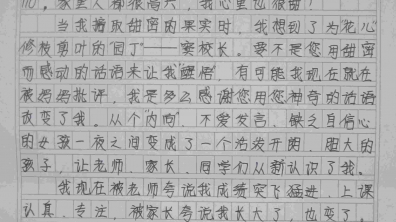 110，家里人都很高兴，我心里也很甜！
当我摘取甜密的果实时，我想到了为“花儿”
修枝剪叶的“园丁”——窦校长。要不是您用甜密
而感动的话语来让我“醒悟”，有可能我现在就在
被妈妈批评，我是多么感谢您用您神奇的话语
改变了我。从个“内向”，不爱发言，缺乏自信心
的女孩一夜之间变成了一个活泼开朗、胆大的
孩子，让老师、家长、同学们从新认识了我。
我现在被老师夸说我成绩突飞猛进，上课
认真、专注，被家长夸说我长大了，也变了。